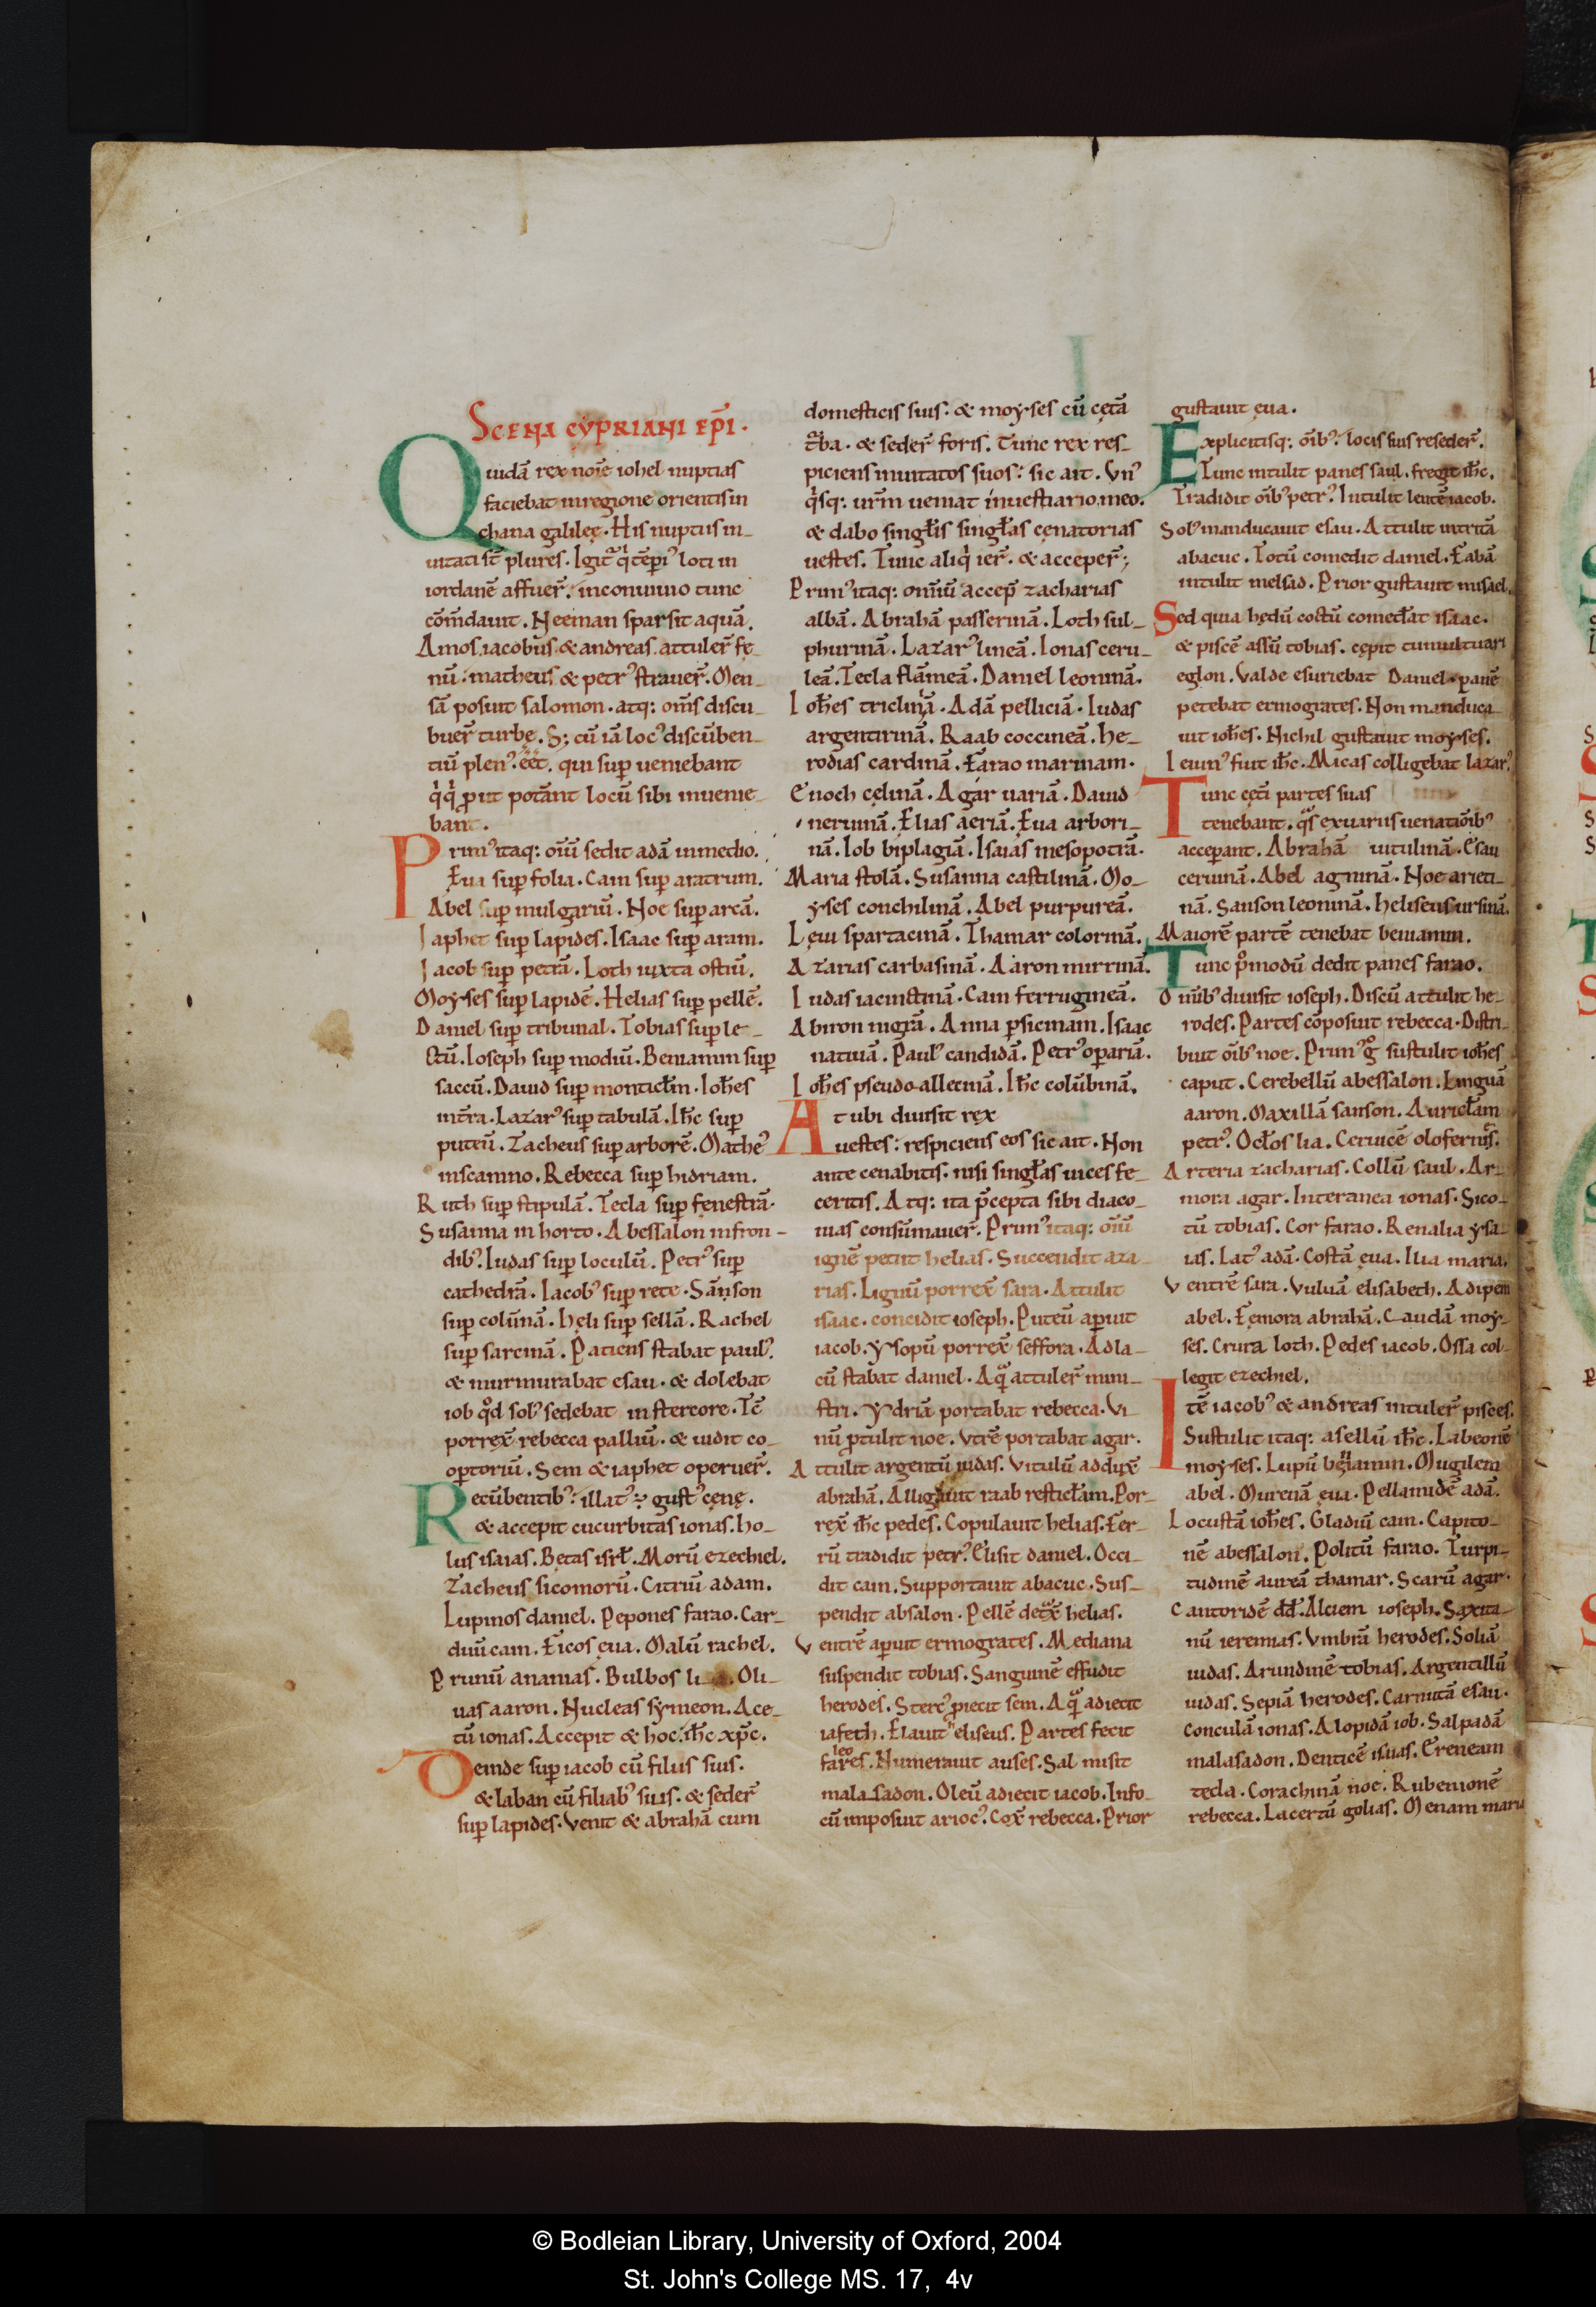 Scena cypriani epī.
Quidā rex noīe iohel nuptias
faciebat in regione orientis in
chana galileę. His nuptiis in-
uitati st̄ plures. Igit᷑ q̇ tēpi᾽ loti in
iordanē affuer̄. in conuiuio tunc
cōm̄daut. Neeman sparsit aquā.
Amos. iacobus. & andreas attuler̄ fę-
nū. matheus & petr᾽ strauer̄. Men-
sā posuit salomon. atq: om̄s discu-
buer̄ turbę. S; cū iā loc᾽ discūben-
tiū plen᾽ eēt. qui sup̱ ueniebant
q̇q̇ p̱ut potānt locū sibi inuenie-
bant.
Prim᾽ itaq: oīūm sedit adā in medio.
Eua sup̱ folia. Cain sup̱ aratrum.
Abel sup̱ mulgariū. Noe sup̱ arcā.
Iaphet sup̱ lapides. Isaac sup̱ aram.
Iacob sup̱ petrā. Loth iuxta ostiū.
Moyses sup̱ lapidē. Helias sup̱ pellē.
Daniel sup̱ tribunal. Tobias sup̱ le-
ctū. Ioseph sup̱ modiū. Beniamin sup̱
saccū. Dauid sup̱ monticłm. Ioħes
int̄ra. Lazar᾽ sup̱ tabulā. Iħc sup̱
puteū. Zacheus sup̱ arborē. Mathe᾽
inscamno. Rebecca sup̱ hidriam.
Ruth sup̱ stipulā. Tecla sup̱ fenestrā.
Susanna in horto. Abessalon in fron-
dib᾽. Iudas sup̱ loculū. Petr᾽ sup̱
cathedrā. Iacob᾽ sup̱ rete. Sanson
sup̱ colūnā. Heli sup̱ sellā. Rachel
sup̱ sarcinā. Patiens stabat paul᾽.
& murmurabat esau. & dolebat
iob q̊d sol᾽ sedebat in stercore. Tc̄
porrex̄ rebecca palliū. & iudit co-
op̱toriū. Sem & iaphet op̱eruer̄.
Recūbentib᾽ illat᾽ ÷ gust᾽ cęnę.
& accepit cucurbitas ionas. ho-
lus isaias. Betas isrł. Morū ezechiel.
Zacheus sicomorū. Citriū adam.
Lupinos daniel. Pepones farao. Car-
duū cain. Ficos ęua. Malū rachel.
Prunū ananias. Bulbos li. Oli-
uas aaron. Nucleas symeon. Ace-
tū ionas. Accepit & hoc. iħc xp̄c.
Deinde sup̱ iacob cū filiis suis.
& laban cū filiab᾽ suis. & seder̄
sup̱ lapides. Venit & abrahā cum
domesticis suis. & moyses cū cętā
t᷑ba. & seder̄ foris. Tunc rex res-
piciens inuitatos suos. sic ait. Vn᾽
q̇sq: ur̄m ueniat in uestiario meo.
& dabo singłis singłas cęnatorias
uestes. Tunc aliq̇ ier̄. & acceper̄;
Prim᾽ itaq: omīū accep̄ zacharias
albā. Abrahā passerinā. Loth sul-
phurinā. Lazar᾽ lineā. Ionas ceru-
leā. Tecla flāmeā. Daniel leoninā.
Ioħes tricłinā. Adā pelliciā. Iudas
argentirinā. Raab coccineā. He-
rodias cardinā. Farao marinam.
Enoch cęlinā. Agar uariā. Dauid
neruinā. Elias aeriā. Eua arbori-
nā. Iob biplagiā. Isaias mesopotrā.
Maria stolā. Susanna castilinā. Mo-
yses conchilinā. Abel purpureā.
Lęui spartacinā. Thamar colorinā.
Azarias carbasinā. Aaron mirrinā.
Iudas iacinctinā. Cain ferrugineā.
Abiron nigrā. Anna p̱sicinam. Isaac
natiuā. Paul᾽ candidā. Petr᾽ op̱ariā.
Ioħes pseudoalletinā. Iħc colūbinā.
At ubi diuisit rex
uestes. respiciens eos sic ait. Non
ante cenabitis. nisi singłas uices fe-
ceritis. Atq: ita p̄cepta sibi diaco-
nias consūmauer̄. Prim᾽ itaq: oīūm
ignē petiit helias. Succendit aza-
rias. Lignū porrex̄ sara. Attulit
isaac. concidit ioseph. Puteū ap̱uit
iacob. Ysopū porrex̄ seffora. Ad la-
cū stabat daniel. Aq᷑ attuler̄ mini-
stri. Ydriā portabat rebecca. Vi-
nū p̱tulit noe. Vtrē portabat agar.
Attulit argentū iudas. Vitulū addux̄
abrahā. Alligauit raab resticłam. Por-
rex̄ iħc pedes. Copulauit helias. Fer-
rū tradidit petr᾽. Elisit daniel. Occi-
dit cain. Supportauit abacuc. Sus-
pendit absalon. Pellē detx̄ helias.
Ventrē ap̱uit ermogrates. Mediana
suspendit tobias. Sanguinē effudit
herodes. Sterc᾽ p̱iecit sem. Aq᷑ adiecit
iafeth. Elauit eliseus. Partes fecit
fares. Numerauit auses. Sal misit
malasadon. Oleū adiecit iacob. In fo-
cū imposuit arioc᾽. Cox̄ rebecca. Prior
gustauit ęua.
Explicitisq: oīb᾽ locis suis reseder̄.
Tunc intulit panes saul. fregit iħc.
Tradidit oīb᾽ petr᾽. Intulit lentē iacob.
Sol᾽ manducauit esau. Attulit intritā
abacuc. Totū comedit daniel. Fabā
intulit melsad. Prior gustauit misael.
Sed quia hędū coctū comedłat isaac.
& piscē assū tobias. cępit tumultuari
eglon. Valde esuriebat Daniel. panē
petebat ermogrates. Non manduca-
uit ioħes. Nichil gustauit moyses.
Ieiun᾽ fuit iħc. Micas colligebat lazar᾽.
Tunc cęti partes suas
tenebant. q᷑s ex uariis uenatiōib᾽
accep̱ant. Abrahā uitulinā. Esau
ceruinā. Abel agninā. Noe arieti-
nā. Sanson leoninā. heliseus ursinā.
Maiorē partē tenebat beniamin.
Tunc p̊modū dedit panes farao.
Omīb᾽ diuisit ioseph. Discū attulit he-
rodes. Partes cōposuit rebecca. Distri-
buit oīb᾽ noe. Prim᾽ g̊ sustulit ioħes
caput. Cerebellū abessalon. Linguā
aaron. Maxillā sanson. Auricłam
petr᾽. Ocłos lia. Ceruicē olofernis᾽.
Arteria zacharias. Collū saul. Ar-
mora agar. Interanea ionas. Sico-
tū tobias. Cor farao. Renalia ysa-
ias. Lat᾽ adā. Costā ęua. Ilia maria.
Ventrē sara. Vuluā elisabeth. Adipem
abel. Femora abrahā. Caudā moy-
ses. Crura loth. Pedes iacob. Ossa col-
legit ezechiel.
Itē iacob᾽ & andreas intuler̄ pisces.
Sustulit itaq: asellū iħc. Labeonē
moyses. Lupū beniamin. Mugilem
abel. Murenā ęua. Pellamidē adā.
Locustā ioħes. Gladiū cain. Capito-
nē abessalon. Politū farao. Turpi-
tudinē aureā thamar. Scarū agar.
Cantoridē dđ. Alciem ioseph. Saxita-
nū ieremias. Vmbrā herodes. Soliā
iudas. Arundinē tobias. Argentillū
iudas. Sepiā herodes. Carnutā esau.
Conculā ionas. Alopidā iob. Salpadā
malasadon. Denticē isuas. Ereneam
tecla. Corachinā noe. Rubenionē
rebecca. Lacertū golias. Menam maria
© Bodleian Library, University of Oxford, 2004
St. John's College MS. 17, 4v